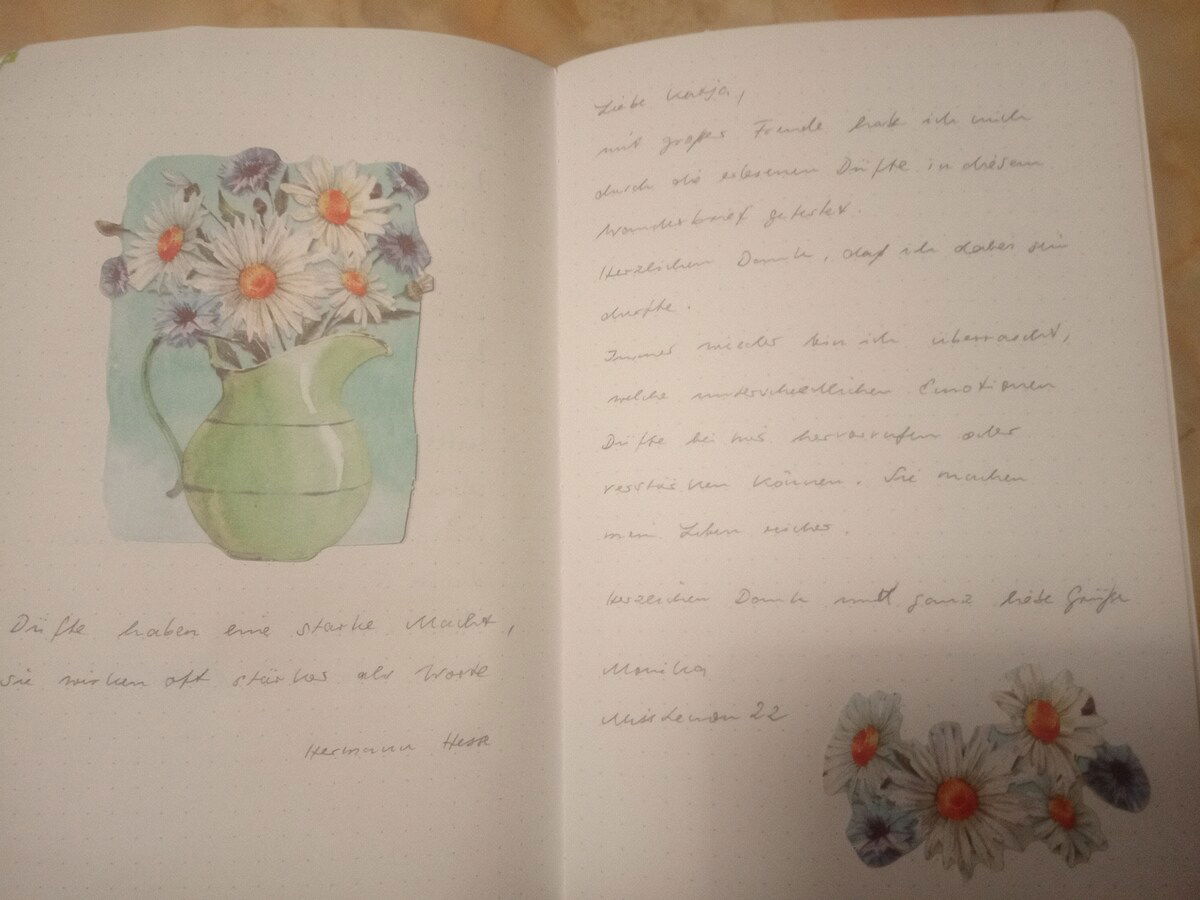 Düfte haben eine starke Macht,
sie wirken oft stärker als Worte
Hermann Hesse
Liebe Katja,
mit großer Freude habe ich mich
durch die erlesenen Düfte in diesem
Wanderbrief getestet.
Herzlichen Dank, daß ich dabei sein
durfte.
Immer wieder bin ich überrascht,
welche unterschiedlichen Emotionen
Düfte bei mir hervorrufen oder
verstärken können. Sie machen
mein Leben reicher.
Herzlichen Dank und ganz liebe Grüße
Monika
MissLemon22